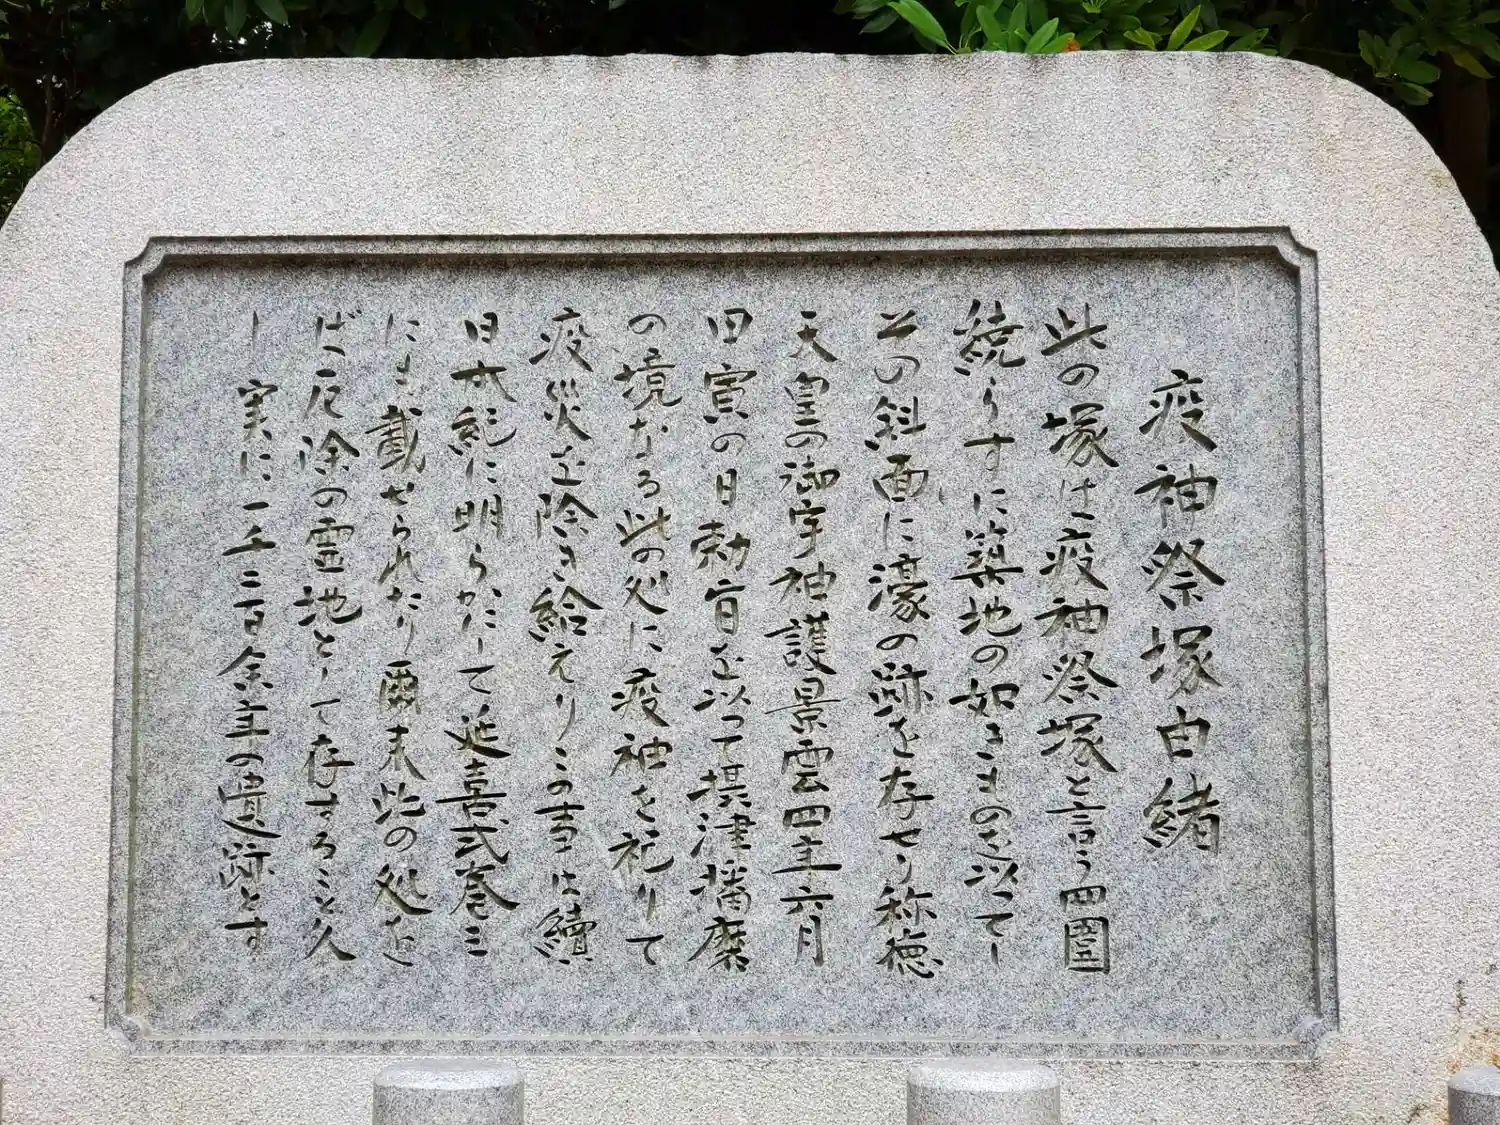 疫神祭塚由緒
此の塚は疫神祭塚と言う四圍
続らすに築地の如きものを以ってし
その斜面に濠の跡を存せり称徳
天皇の御宇神護景雲四年六月
甲寅の日勅旨を以って摂津播磨
の境なる此の処に疫神を祀りて
疫災を除き給えりこの事は續
日本紀に明らかにして延喜式巻三
にも載せられたり爾来此の処を
ば厄除の霊地として存すること久
し 実に一千二百余年の遺跡とす